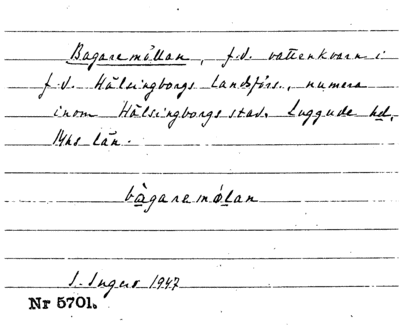 Bagaremöllan, f.d. vattenkvarn i
f.d. Hälsingborgs Landsförs., numera
inom Hälsingborgs stad. Luggude hd,
Mhs län.
bàgaremølan
S. Ingers 1947
Nr 5701.